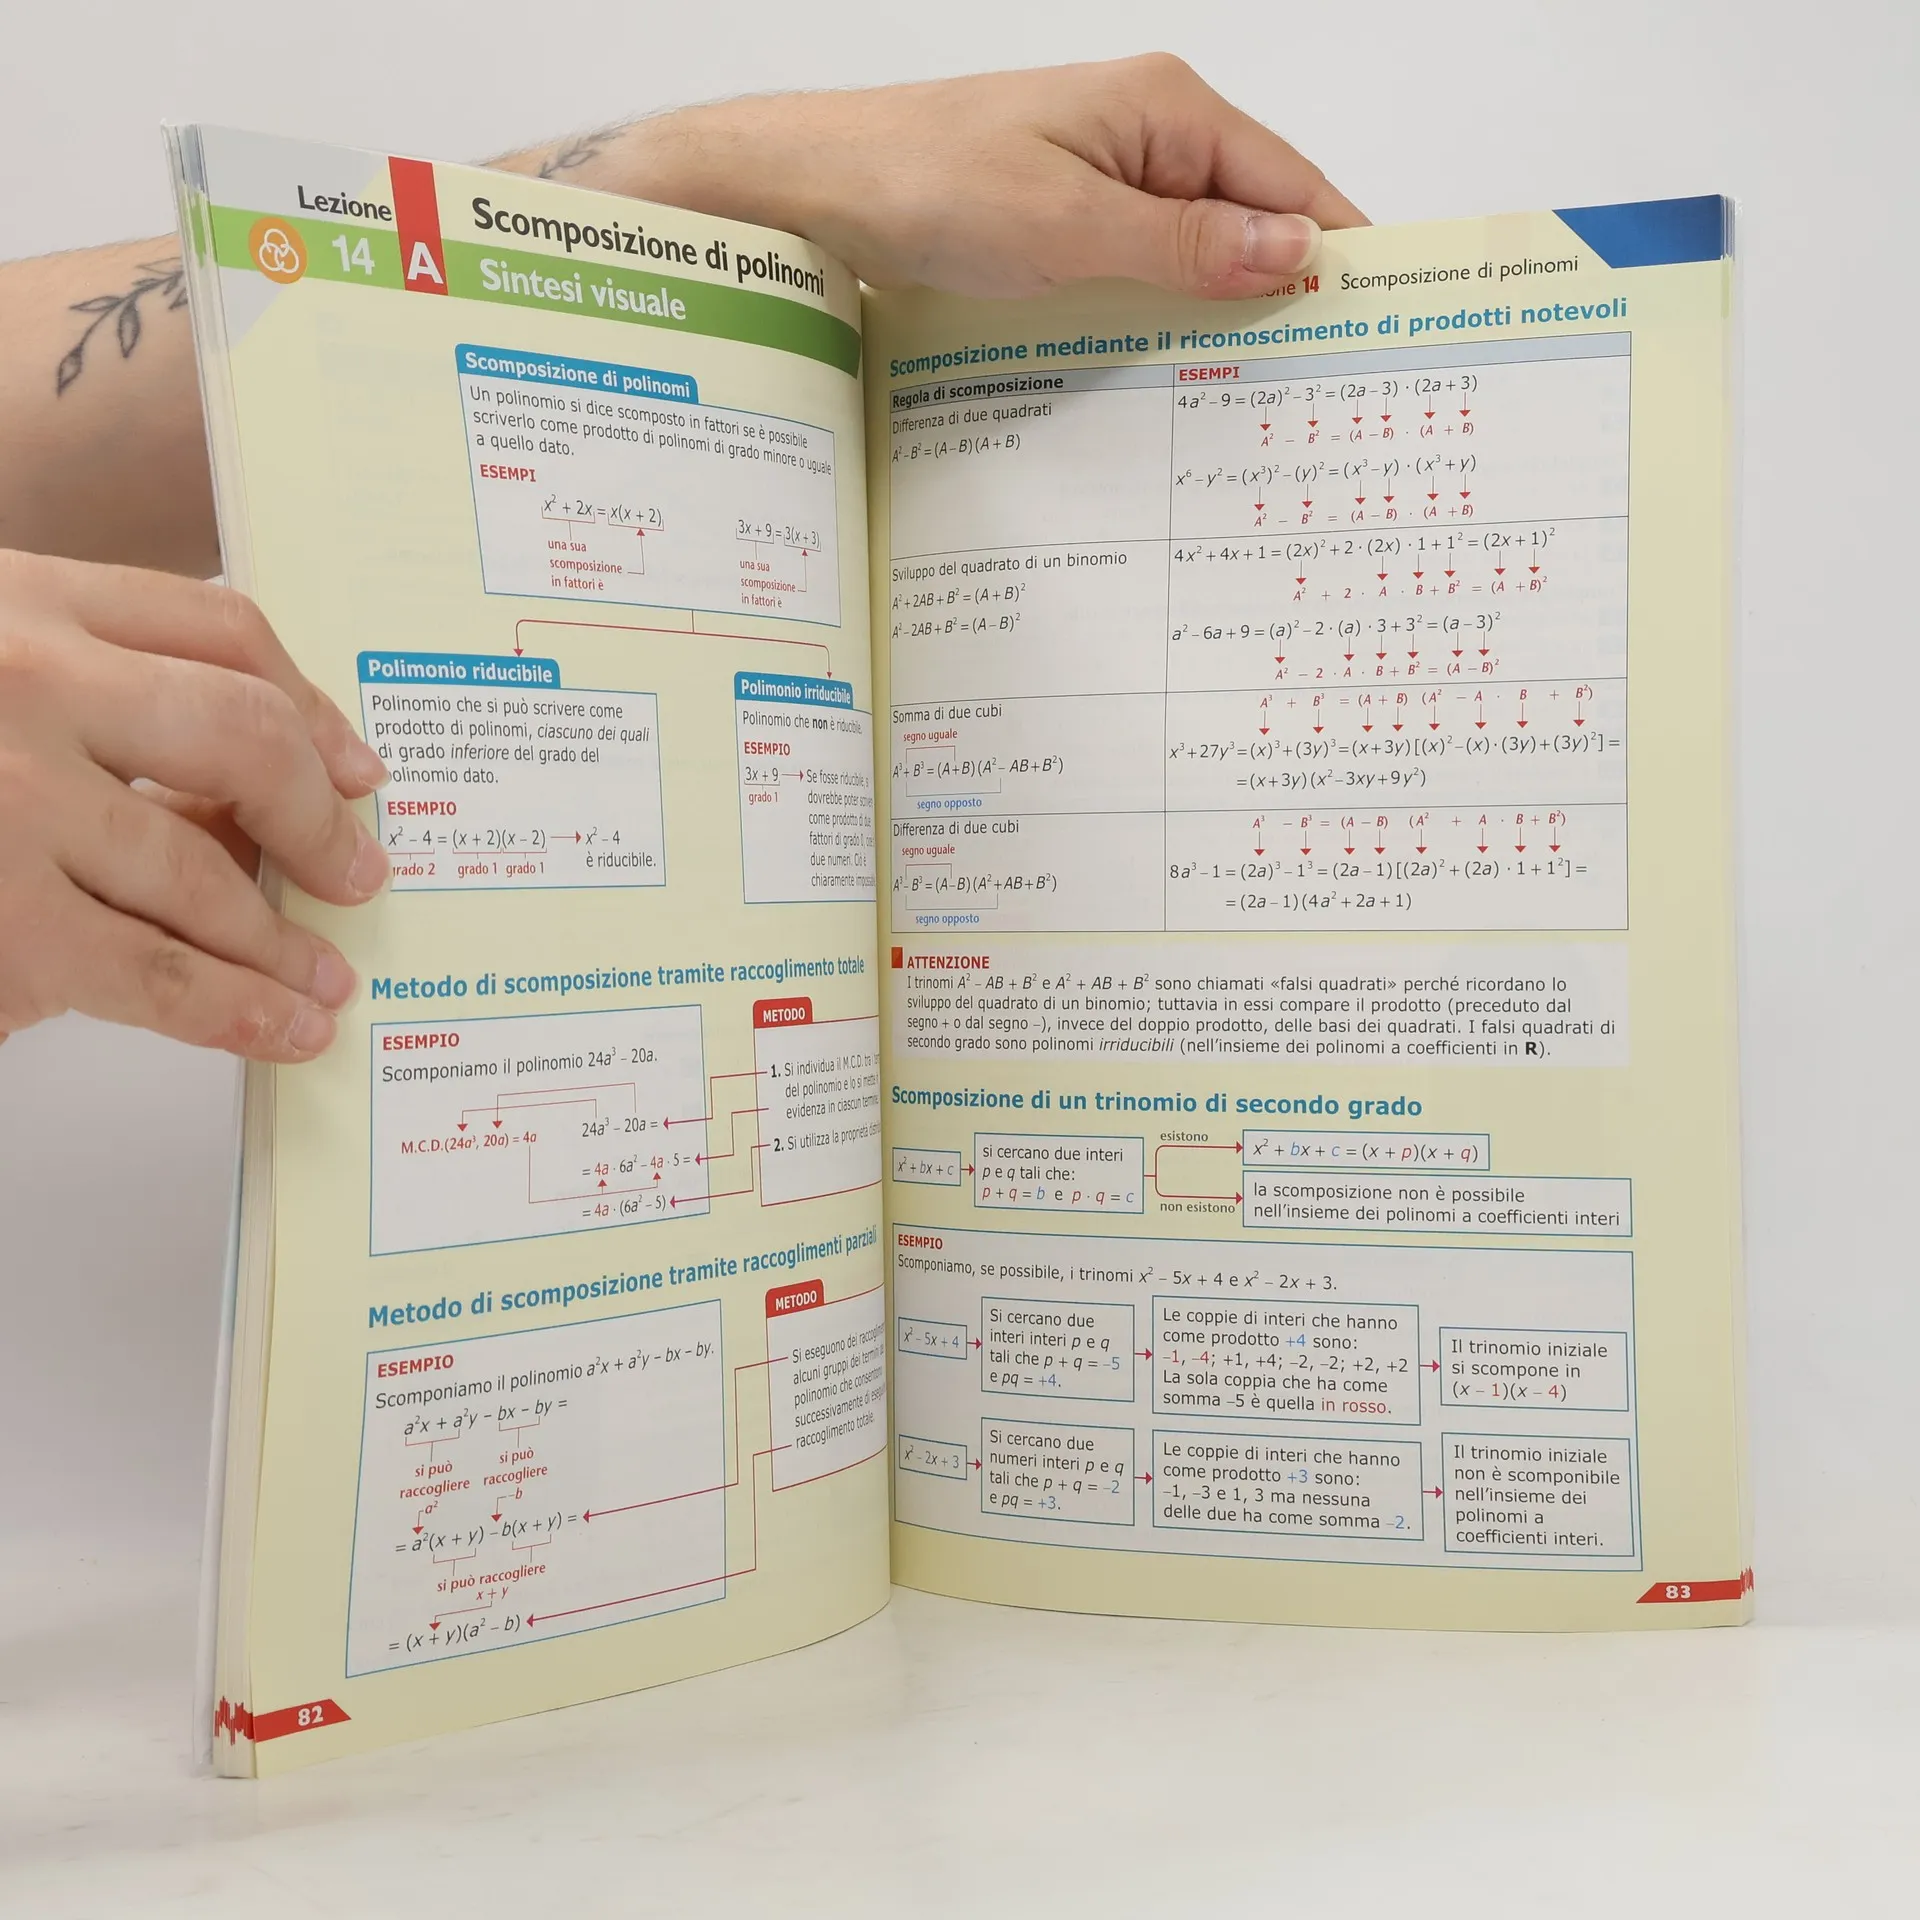 Lezione
14
A
Scomposizione di polinomi
Sintesi visuale
Scomposizione di polinomi
Un polinomio si dice scomposto in fattori se è possibile
scriverlo come prodotto di polinomi di grado minore o uguale
a quello dato.
ESEMPI
x² + 2x = x(x + 2)
una sua
scomposizione
in fattori è
3x + 9 = 3(x + 3)
una sua
scomposizione
in fattori è
Polimonio riducibile
Polinomio che si può scrivere come
prodotto di polinomi, ciascuno dei quali
di grado inferiore del grado del
polinomio dato.
ESEMPIO
x² – 4 = (x + 2)(x – 2) → x² – 4
è riducibile.
grado 2 grado 1 grado 1
Polimonio irriducibile
Polinomio che non è riducibile.
ESEMPIO
3x + 9 → Se fosse riducibile, si
grado 1
dovrebbe poter
come prodotto di due
fattori di grado 0,
due numeri. Ciò è
chiaramente
Metodo di scomposizione tramite raccoglimento totale
ESEMPIO
Scomponiamo il polinomio 24a³ – 20a.
M.C.D.(24a³, 20a) = 4a
24a³ – 20a =
= 4a · 6a² – 4a · 5 =
= 4a · (6a² – 5)
METODO
1. Si individua il M.C.D. tra i
del polinomio e lo si mette in
evidenza in ciascun termine.
2. Si utilizza la proprietà
Metodo di scomposizione tramite raccoglimenti parziali
ESEMPIO
Scomponiamo il polinomio a²x + a²y – bx – by.
a²x + a²y – bx – by =
si può
raccogliere
a²
si può
raccogliere
–b
= a²(x + y) – b(x + y) =
si può raccogliere
x + y
= (x + y)(a² – b)
METODO
Si eseguono dei
alcuni gruppi dei termini
polinomio che consentono
successivamente di
raccoglimento totale.
82
14 Scomposizione di polinomi
Scomposizione mediante il riconoscimento di prodotti notevoli
Regola di scomposizione
ESEMPI
Differenza di due quadrati
A² – B² = (A – B) (A + B)
4a² – 9 = (2a)² – 3² = (2a – 3) · (2a + 3)
A² – B² = (A – B) · (A + B)
x⁶ – y² = (x³)² – (y)² = (x³ – y) · (x³ + y)
A² – B² = (A – B) · (A + B)
Sviluppo del quadrato di un binomio
A² + 2AB + B² = (A + B)²
A² – 2AB + B² = (A – B)²
4x² + 4x + 1 = (2x)² + 2 · (2x) · 1 + 1² = (2x + 1)²
A² + 2 · A · B + B² = (A + B)²
a² – 6a + 9 = (a)² – 2 · (a) · 3 + 3² = (a – 3)²
A² – 2 · A · B + B² = (A – B)²
Somma di due cubi
segno uguale
A³ + B³ = (A + B) (A² – AB + B²)
segno opposto
A³ + B³ = (A + B) (A² – A · B + B²)
x³ + 27y³ = (x)³ + (3y)³ = (x + 3y) [(x)² – (x) · (3y) + (3y)²] =
= (x + 3y) (x² – 3xy + 9y²)
Differenza di due cubi
segno uguale
A³ – B³ = (A – B) (A² + AB + B²)
segno opposto
A³ – B³ = (A – B) (A² + A · B + B²)
8a³ – 1 = (2a)³ – 1³ = (2a – 1) [(2a)² + (2a) · 1 + 1²] =
= (2a – 1) (4a² + 2a + 1)
ATTENZIONE
I trinomi A² – AB + B² e A² + AB + B² sono chiamati «falsi quadrati» perché ricordano lo
sviluppo del quadrato di un binomio; tuttavia in essi compare il prodotto (preceduto dal
segno + o dal segno –), invece del doppio prodotto, delle basi dei quadrati. I falsi quadrati di
secondo grado sono polinomi irriducibili (nell'insieme dei polinomi a coefficienti in R).
Scomposizione di un trinomio di secondo grado
x² + bx + c
si cercano due interi
p e q tali che:
p + q = b e p · q = c
esistono
x² + bx + c = (x + p)(x + q)
non esistono
la scomposizione non è possibile
nell'insieme dei polinomi a coefficienti interi
ESEMPIO
Scomponiamo, se possibile, i trinomi x² – 5x + 4 e x² – 2x + 3.
x² – 5x + 4
Si cercano due
interi interi p e q
tali che p + q = –5
e pq = +4.
Le coppie di interi che hanno
come prodotto +4 sono:
–1, –4; +1, +4; –2, –2; +2, +2
La sola coppia che ha come
somma –5 è quella in rosso.
Il trinomio iniziale
si scompone in
(x – 1)(x – 4)
x² – 2x + 3
Si cercano due
numeri interi p e q
tali che p + q = –2
e pq = +3.
Le coppie di interi che hanno
come prodotto +3 sono:
–1, –3 e 1, 3 ma nessuna
delle due ha come somma –2.
Il trinomio iniziale
non è scomponibile
nell'insieme dei
polinomi a
coefficienti interi.
83